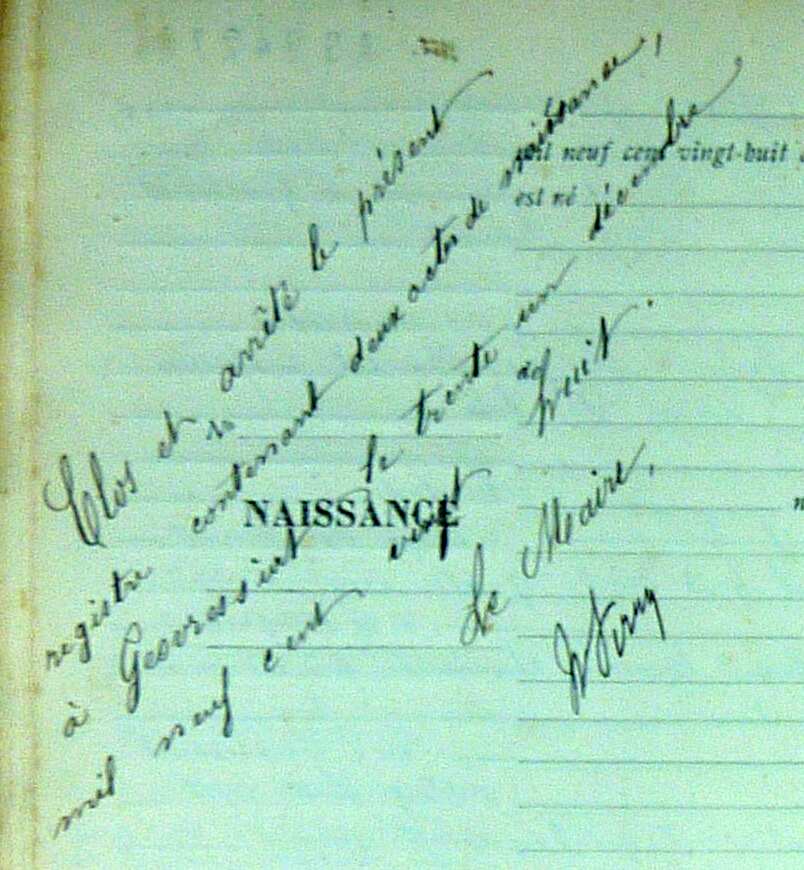 Clos et arrêté le présent
registre contenant deux actes de naissance,
à Geovressiat le trente un décembre
mil neuf cent vingt huit.
Le Maire,
NAISSANCE
mil neuf cent vingt-huit
est né